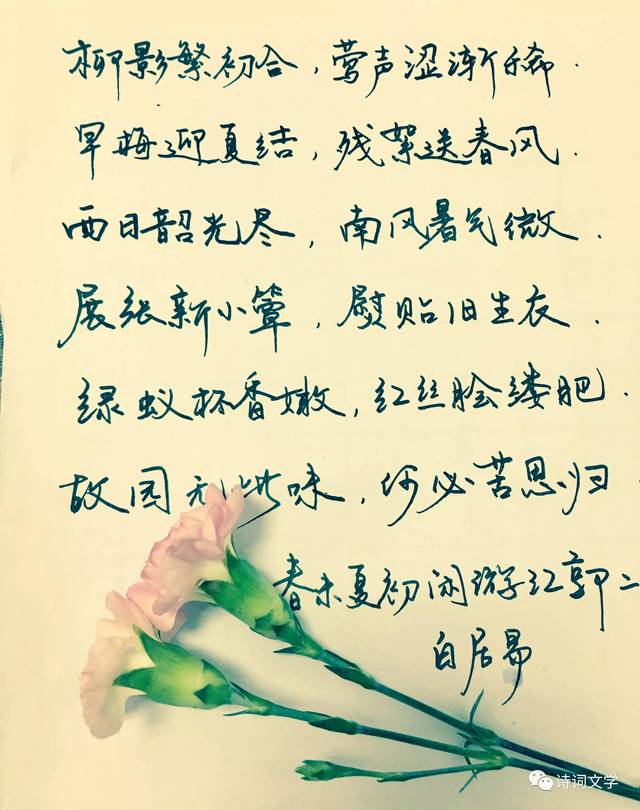 柳影繁初合，莺声涩渐稀．
早梅迎夏结，残絮送春风．
西日韶光尽，南风暑气微．
展张新小簟，熨贴旧生衣．
绿蚁杯香嫩，红丝脍缕肥．
故园无此味，何必苦思归．
春末夏初闲游江郭二
白居易
诗词文学